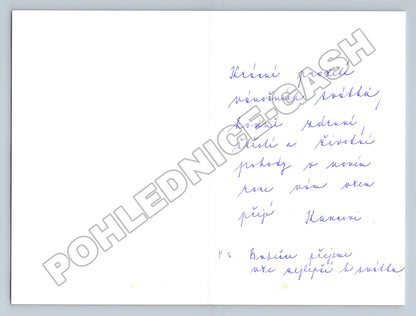 Krásné prožití
vánočních svátků,
hodně zdraví,
štěstí a životní
pohody v novém
roce vám všem
přejí Hanovi
P.S. Babičce přejeme
vše nejlepší k svátku
POHLEDNICE.CASH